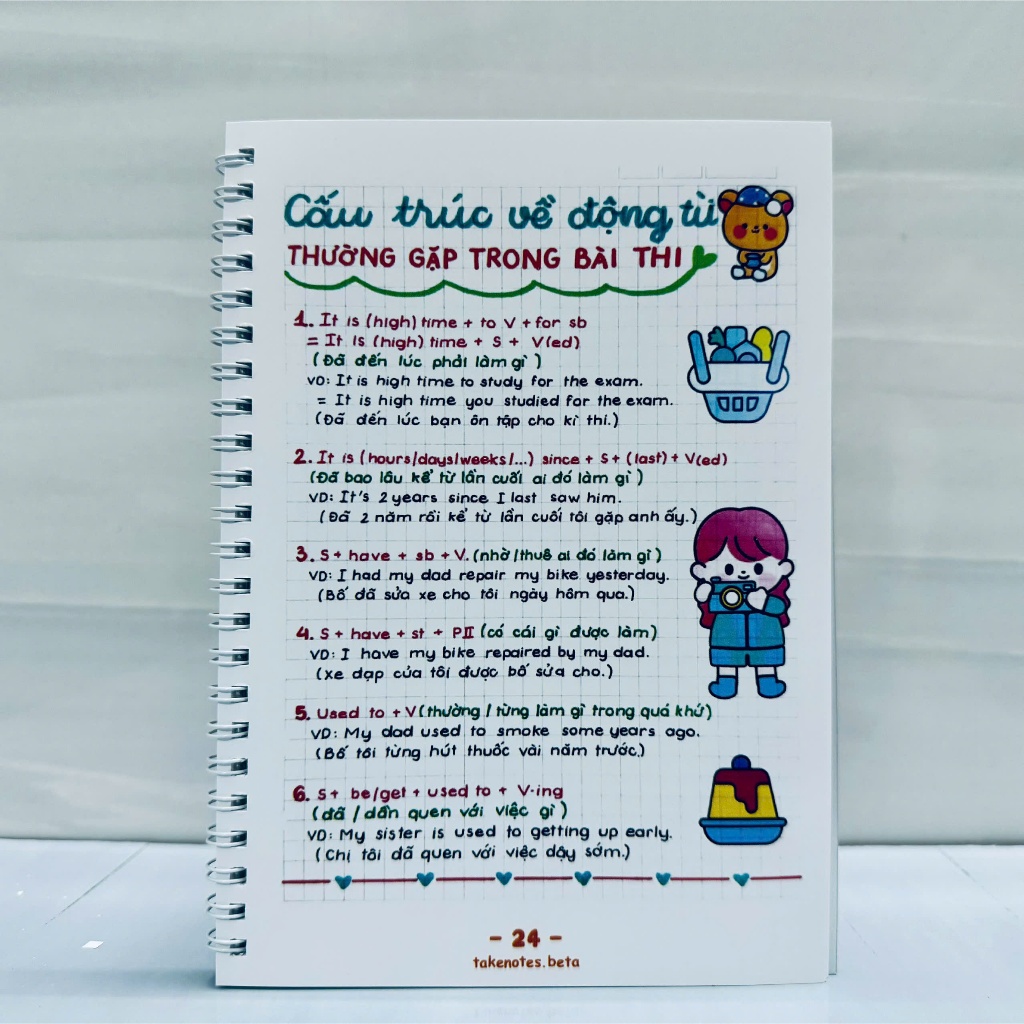 Cấu trúc về động từ
THƯỜNG GẶP TRONG BÀI THI
1. It is (high) time + to V + for sb
= It is (high) time + S + V(ed)
(Đã đến lúc phải làm gì)
VD: It is high time to study for the exam.
= It is high time you studied for the exam.
(Đã đến lúc bạn ôn tập cho kì thi.)
2. It is (hours/days/weeks/...) since + S + (last) + V(ed)
(Đã bao lâu kể từ lần cuối ai đó làm gì)
VD: It's 2 years since I last saw him.
(Đã 2 năm rồi kể từ lần cuối tôi gặp anh ấy.)
3. S + have + sb + V. (nhờ/thuê ai đó làm gì)
VD: I had my dad repair my bike yesterday.
(Bố đã sửa xe cho tôi ngày hôm qua.)
4. S + have + st + PII (có cái gì được làm)
VD: I have my bike repaired by my dad.
(xe đạp của tôi được bố sửa cho.)
5. Used to + V (thường / từng làm gì trong quá khứ)
VD: My dad used to smoke some years ago.
(Bố tôi từng hút thuốc vài năm trước.)
6. S + be/get + used to + V-ing
(đã / dần quen với việc gì)
VD: My sister is used to getting up early.
(Chị tôi đã quen với việc dậy sớm.)
- 24 -
takenotes.beta